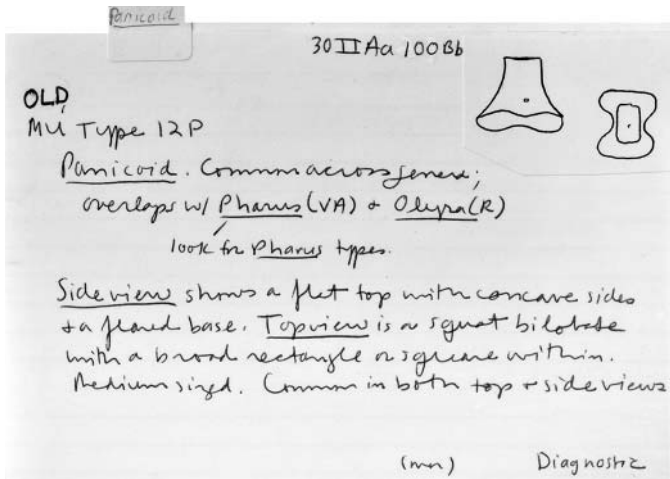 Panicoid
30 II Aa 100 Bb
OLD
MU Type 12P
Panicoid. Common across genera;
overlaps w/ Pharus (VA) + Olyra (R)
look for Pharus types.
Side view shows a flat top with concave sides
+ a flared base. Top view is a squat bilobate
with a broad rectangle or square within.
Medium sized. Common in both top + side views
(mn) Diagnostic